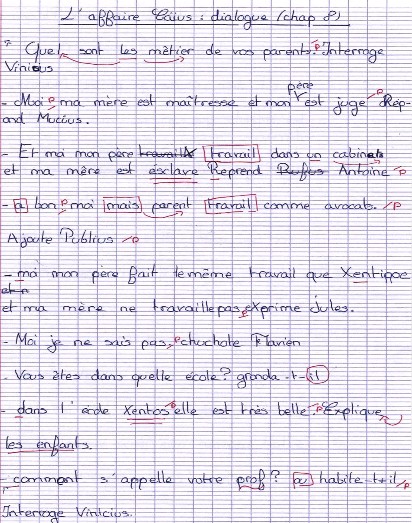 L'affaire Caïus : dialogue (chap 8)
" Quel sont les métier de vos parents. Interroge
Vinicius
- Moi ma mère est maîtresse et mon père est juge Rép-
ond Mucius.
- Et moi mon père travaill travail dans un cabinets
et ma mère est esclave Reprend Rufus Antoine
- a bon moi mais parent travail comme avocats.
Ajoute Publius
- ma mon père fait le même travail que Xentique
et n
et ma mère ne travaille pas exprime Jules.
- Moi je ne sais pas, chuchote Flavien
- Vous êtes dans quelle école ? gronda-t-il
- dans l'école Xentos elle est très belle. Explique
les enfants.
- comment s'appelle votre prof ? ou habite-t-il
Interroge Vinicius.